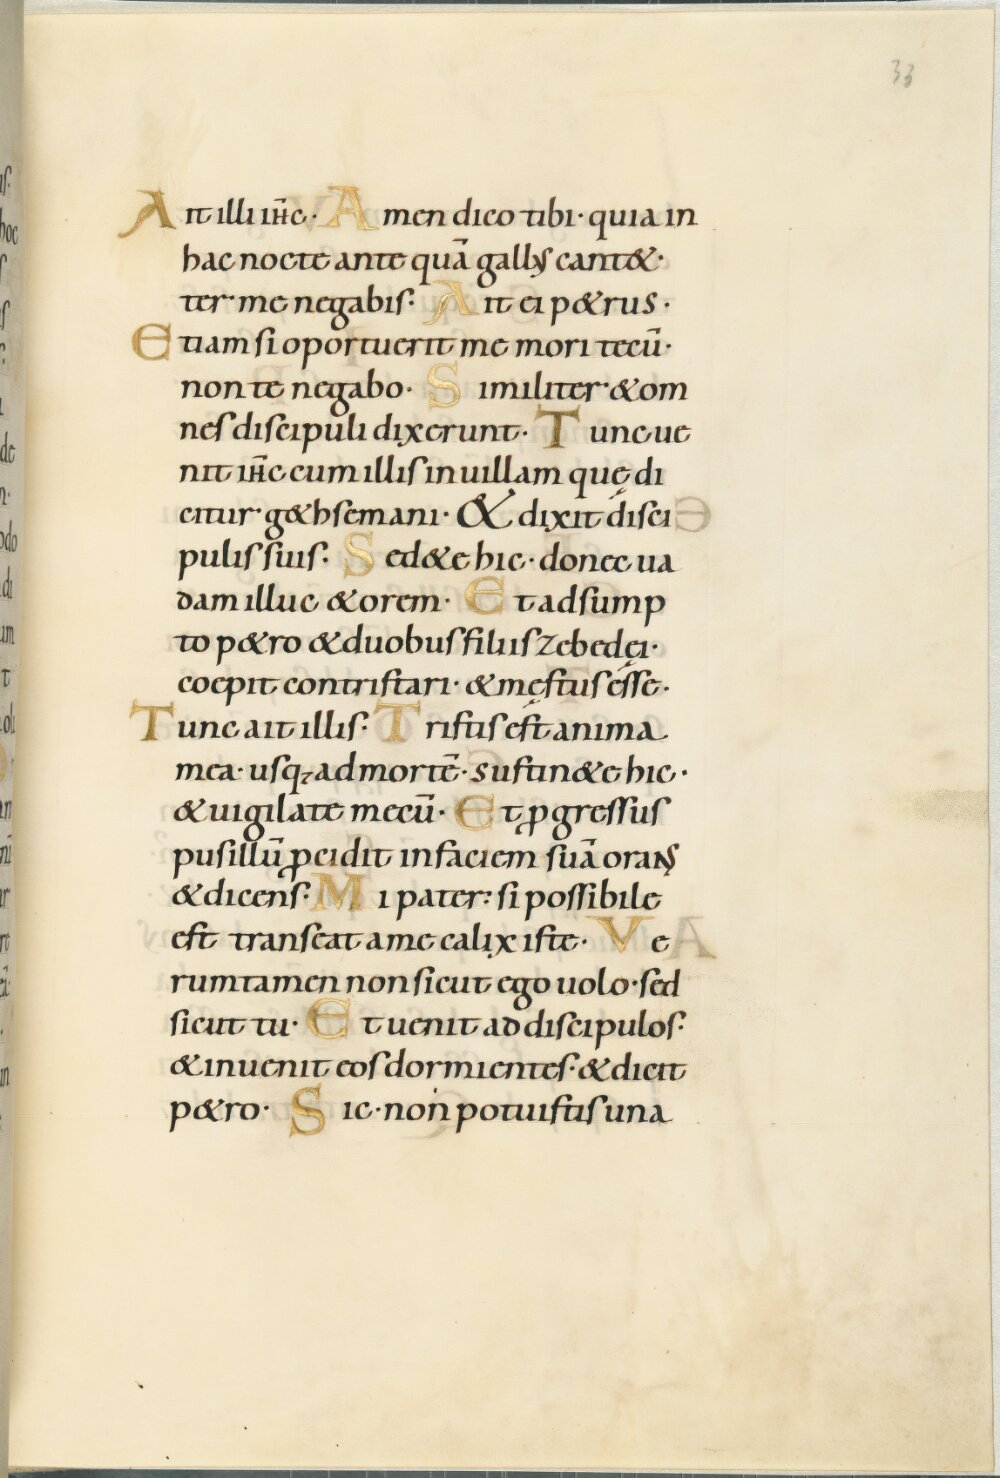 33
Ait illi ih̅c· Amen dico tibi· quia in
hac nocte ante quā gallus cant&·
ter me negabis· Ait ei p&rus·
Etiam si oportuerit me mori tecū·
non te negabo· Similiter &om
nes discipuli dixerunt· Tunc ue
nit ih̅c cum illis in uillam quę di
citur g&hsemani· & dixit disci
pulis suis· Sed&e hic· donec ua
dam illuc &orem· Et adsump
to p&ro &duobus filiis zebedęi·
coepit contristari· &męstus esse·
Tunc ait illis· Tristis est anima
mea· usq; ad mortē· sustin&e hic·
&uigilate mecū· Et ꝓgressus
pusillū ꝓcidit in faciem suā orans
&dicens· Mi pater: si possibile
est transeat a me calix iste· Ve
rumtamen non sicut ego uolo· sed
sicut tu· Et uenit ad discipulos·
&inuenit eos dormientes· &dicit
p&ro· Sic· non potuistis una